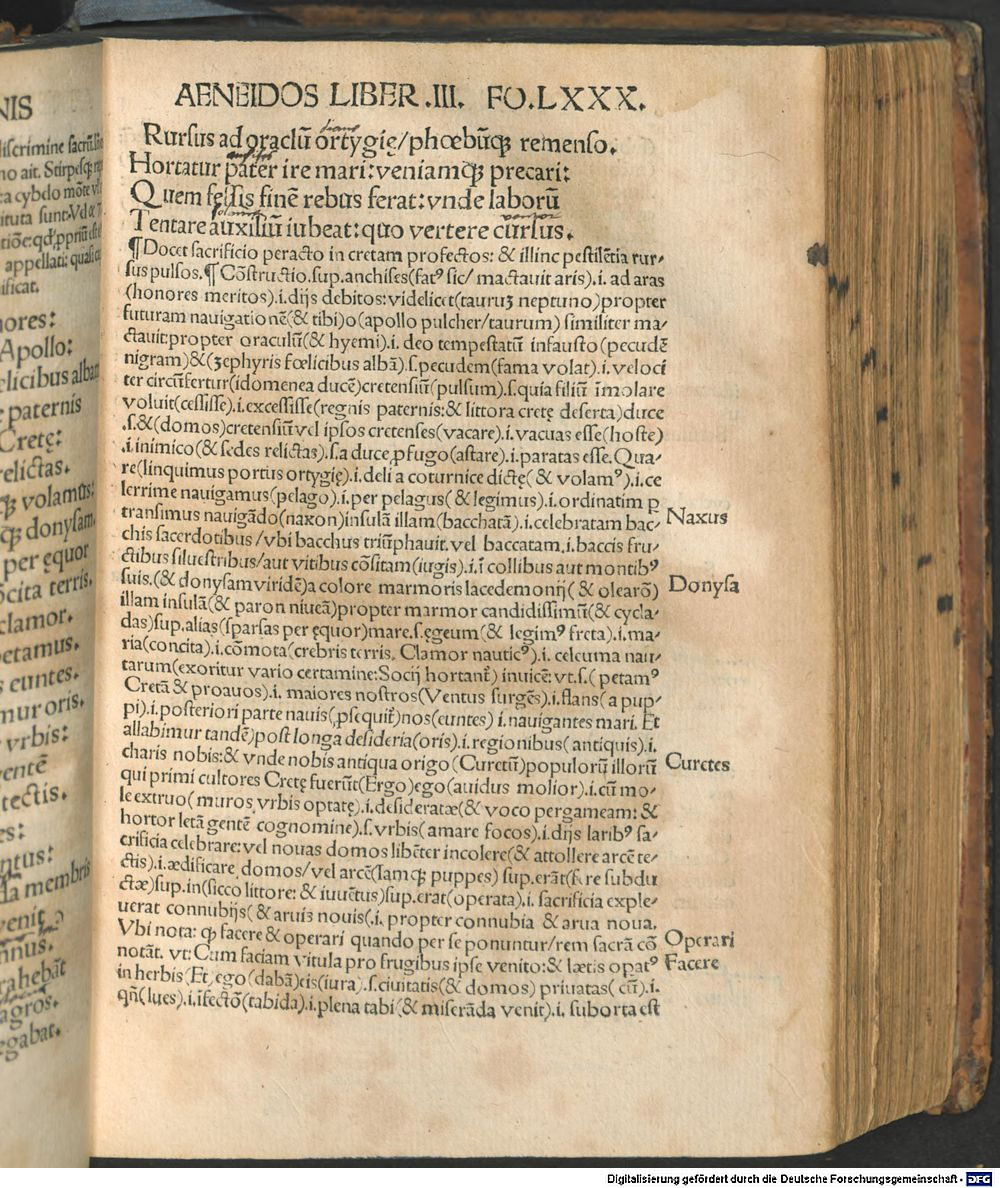 NIS
AENEIDOS LIBER .III. FO.LXXX.
Rursus ad oraclū ortygię/phœbūqꝫ remenso.
Hortatur pater ire mari: veniamqꝫ precari:
Quem fessis finē rebus ferat: vnde laborū
Tentare auxiliū iubeat: quo vertere cursus.
¶Docet sacrificio peracto in cretam profectos: & illinc pestilētia rur⸗
sus pulsos.¶Cōstructio.sup.anchises(fatꝰ sic/ mactauit aris).i. ad aras
(honores meritos).i.dijs debitos: videlicet(tauruʒ neptuno)propter
futuram nauigationē(& tibi)o(apollo pulcher/taurum) similiter ma⸗
ctauit:propter oraculū(& hyemi).i. deo tempestatū infausto(pecudē
nigram)&(ʒephyris fœlicibus albā).s.pecudem(fama volat).i.veloci
ter circūfertur(idomenea ducē)cretensiū(pulsum).s.quia filiū īmolare
voluit(cessisse).i.excessisse(regnis paternis:& littora cretę deserta)duce
.s.&(domos)cretensiū vel ipsos cretenses(vacare).i.vacuas esse(hoste)
.i.inimico(& sedes relictas).s.a duce ꝓfugo(astare).i.paratas esse. Qua⸗
re(linquimus portus ortygię).i.deli a coturnice dictę(& volamꝰ).i.ce
lerrime nauigamus(pelago).i.per pelagus(& legimus).i.ordinatim ꝑ
transimus nauigādo(naxon)insulā illam(bacchatā).i.celebratam bac⸗
chis sacerdotibus/vbi bacchus triūphauit.vel baccatam.i.baccis fru⸗
ctibus siluestribus/aut vitibus cōsitam(iugis).i.ī collibus aut montibꝰ
suis.(& donysam viridē)a colore marmoris lacedemonij(& olearō)
illam insulā(& paron niueā)propter marmor candidissimū(& cycla⸗
das)sup.alias(sparsas per ęquor)mare.s.ęgeum(& legimꝰ freta).i.ma⸗
ria(concita).i.cōmota(crebris terris. Clamor nauticꝰ).i. celeuma nau⸗
tarum(exoritur vario certamine:Socij hortant̄) inuicē: vt.s.(petamꝰ
Cretā & proauos).i. maiores nostros(Ventus surgēs).i.flans(a pup⸗
pi).i.posteriori parte nauis(ꝓsequit̄)nos(euntes) i.nauigantes mari. Et
allabimur tandē)post longa desideria(oris).i.regionibus(antiquis).i.
charis nobis:& vnde nobis antiqua origo(Curetū)populorū illorū
qui primi cultores Cretę fuerūt(Ergo)ego(auidus molior).i.cū mo⸗
le extruo(muros vrbis optatę).i.desideratæ(& voco pergameam: &
hortor letā gentē cognomine).s.vrbis(amare focos).i.dijs laribꝰ sa⸗
crificia celebrare: vel nouas domos libēter incolere(& attollere arcē te⸗
ctis).i.ædificare domos/vel arcē(Iamqꝫ puppes) sup.erāt(fere subdu
ctæ)sup.in(sicco littore: & iuuētus)sup.erat(operata).i. sacrificia exple⸗
uerat connubijs(& aruis nouis(.i. propter connubia & arua noua.
Vbi nota: ꝙ facere & operari quando per se ponuntur/rem sacrā cō
notāt. vt: Cum faciam vitula pro frugibus ipse venito:& lætis opatꝰ
in herbis(Et ego(dabā)eis(iura).s.ciuitatis(& domos) priuatas(cū).i.
qn̄(lues).i.īfectō(tabida).i.plena tabi(& miserāda venit).i. suborta est
Naxus
Donysa
Curetes
Operari
Facere
Digitalisierung gefördert durch die Deutsche Forschungsgemeinschaft - DFG